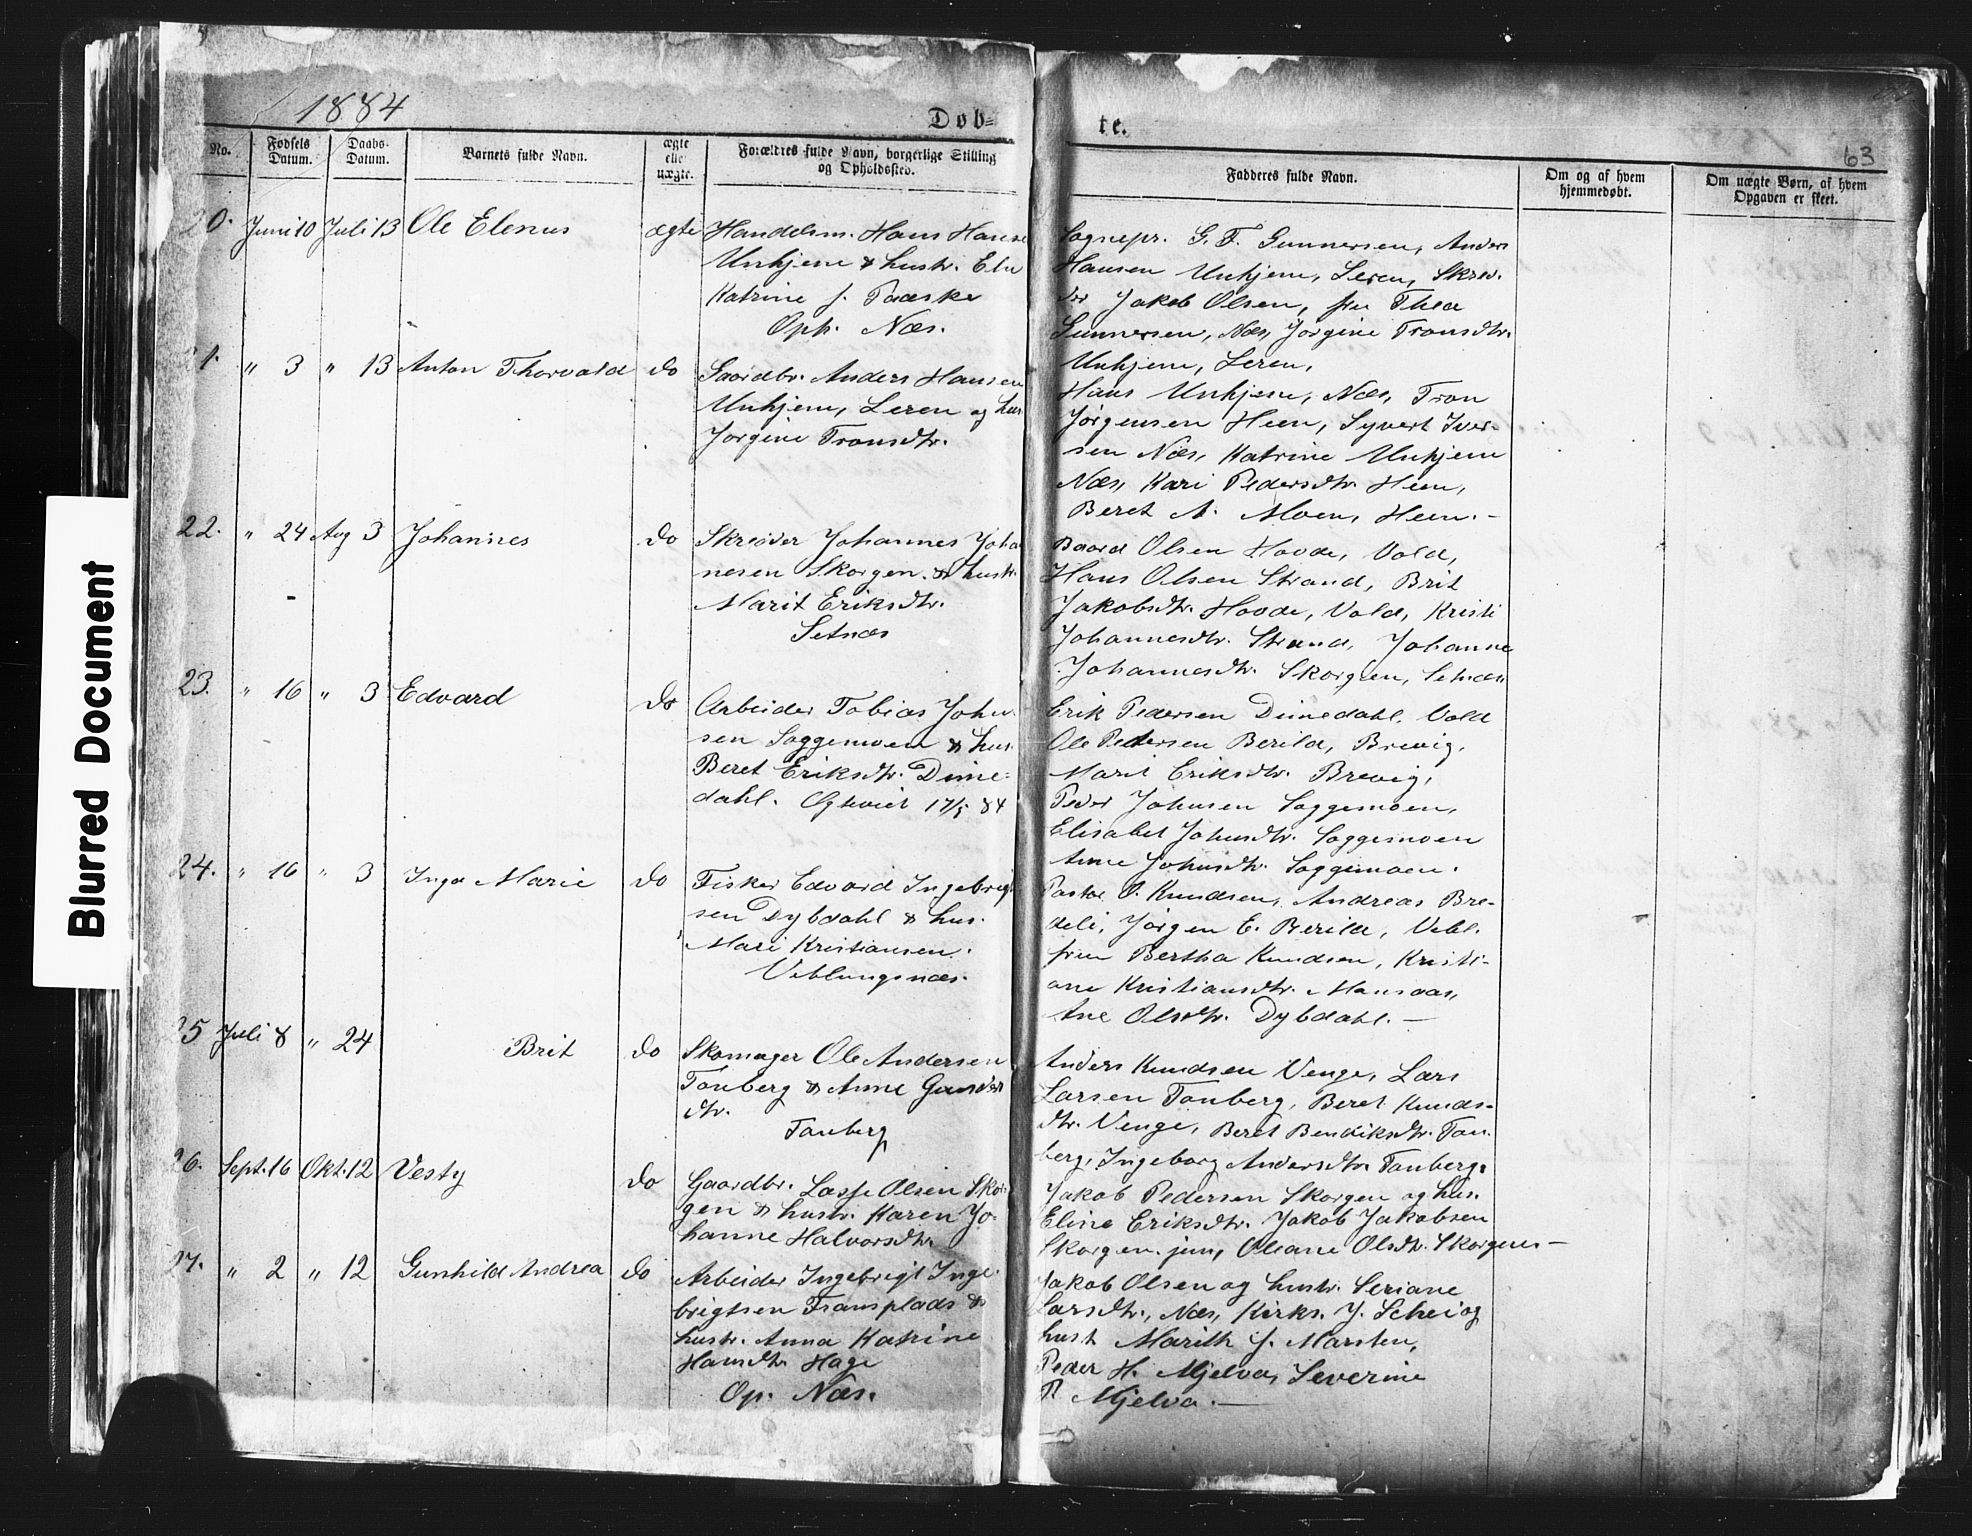 Blurred Document
1884
Døb=
te.
63
No.
Fødsels Datum.
Daabs-Datum.
Barnets fulde Navn.
ægte elle uægte.
Forældres fulde Navn, borgerlige Stilling og Opholdssted.
Fadderes fulde Navn.
Om og af hvem hjemmedøbt.
Om uægte Børn, af hvem Opgaven er skeet.
20. Juni 10 Juli 13 Ole Elenus ægte
Handelsm. Hans Hanse
Unhjem & hustr. Eln
Katrine f. Paaske
Opp. Næs.
Sognepr. G. F. Gunnersen, Anders
Hansen Unhjem, Leren, Skræ-
der Jakob Olsen, fru Thea
Gunnersen, Næs, Jørgine Tronsdtr.
Unhjem, Leren,
21. " 3 " 13 Anton Thorvald do
Gaardbr. Anders Hansen
Unhjem, Leren og hus
Jørgine Tronsdtr.
Hans Unhjem, Næs, Tron
Jørgensen Heen, Syvert Iver-
sen Næs, Katrine Unhjem
Næs, Kari Pedersdtr. Heen,
Beret A. Moen, Heen. -
22. " 24 Aug 3 Johannes do
Skræder Johannes Joha
nesen Skorgen & hustr.
Marit Eriksdtr.
Setnæs
Baard Olsen Hovde, Vold,
Hans Olsen Strand, Brit
Jakobsdtr. Hovde, Vold, Kristi
Johannesdtr. Strand, Johanne
Johannesdtr. Skorgen, Setnæs
23. " 16 " 3 Edvard do
Arbeider Tobias John
sen Soggemoen & hus.
Beret Eriksdtr. Dime-
dahl. Ogkviet 17/5 84
Erik Pedersen Dimedahl, Vold
Ole Pedersen Berild, Brevig,
Marit Eriksdtr. Brevig,
Peder Johnsen Soggemoen,
Elisabet Johnsdtr. Soggemoen
Anne Johnsdtr. Soggemoen.
24. " 16 " 3 Inga Marie do
Fisker Edvard Ingebrigt
sen Dybdahl & hus.
Mari Kristiansen.
Veblungsnæs.
Pastor O. Knudsen, Andreas Bre-
deli, Jørgen E. Berild, Vebl.
fru Bertha Knudsen, Kristi-
ane Kristiansdtr. Monsaas,
Ane Olsdtr. Dybdahl. —
25 Juli 8 " 24 Brit do
Skomager Ole Andersen
Tonberg & Anne Gunder
dtr.
Tonberg
Anders Knudsen Venge, Lars
Larsen Tonberg, Beret Knuds-
dtr. Venge, Beret Bendiksdtr. Ton-
berg, Ingeborg Andersdtr. Tonberg.
26. Sept. 16 Okt. 12 Vesty do
Gaardbr. Lasse Olsen Skor
gen & hustr. Karen Jo-
hanne Halvorsdtr.
Jakob Pedersen Skorgen og hus.
Eline Eriksdtr. Jakob Jakobsen
Skorgen jun, Oleane Olsdtr. Skorgen —
27. " 2 " 12 Gunhild Andrea do
Arbeider Ingebrigt Inge-
brigtsen Framplads &
hustr. Anna Katrine
Hansdtr. Hage
Op. Næs.
Jakob Olsen og hustr. Seriane
Larsdtr., Næs, Kirks. J. Schei og
hust Marith f. Marsten,
Peder H. Mjelva, Severine
P. Mjelva. —